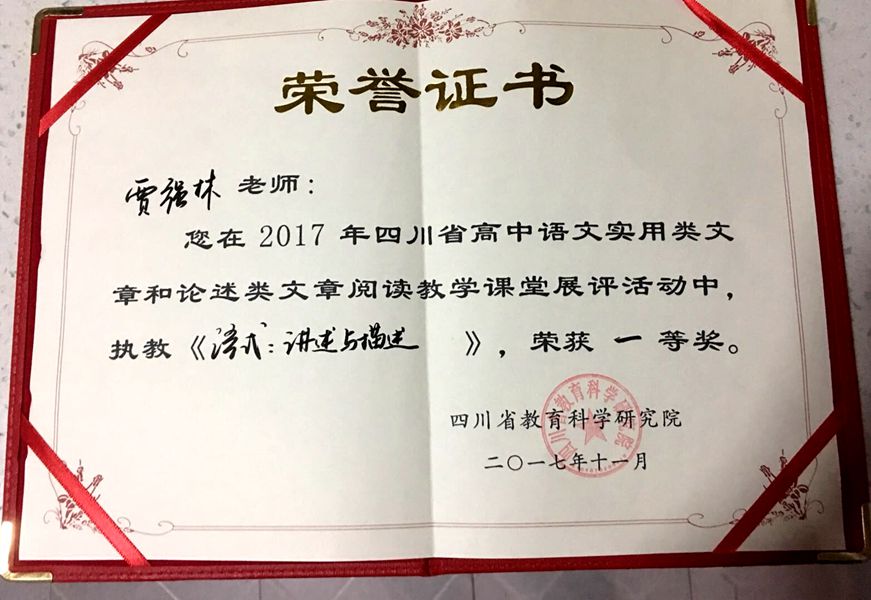 荣誉证书
贾强林 老师：
您在 2017 年四川省高中语文实用类文
章和论述类文章阅读教学课堂展评活动中，
执教《语式：讲述与描述 》，荣获 一 等奖。
四川省教育科学研究院
二〇一七年十一月
四川省教育科学研究院